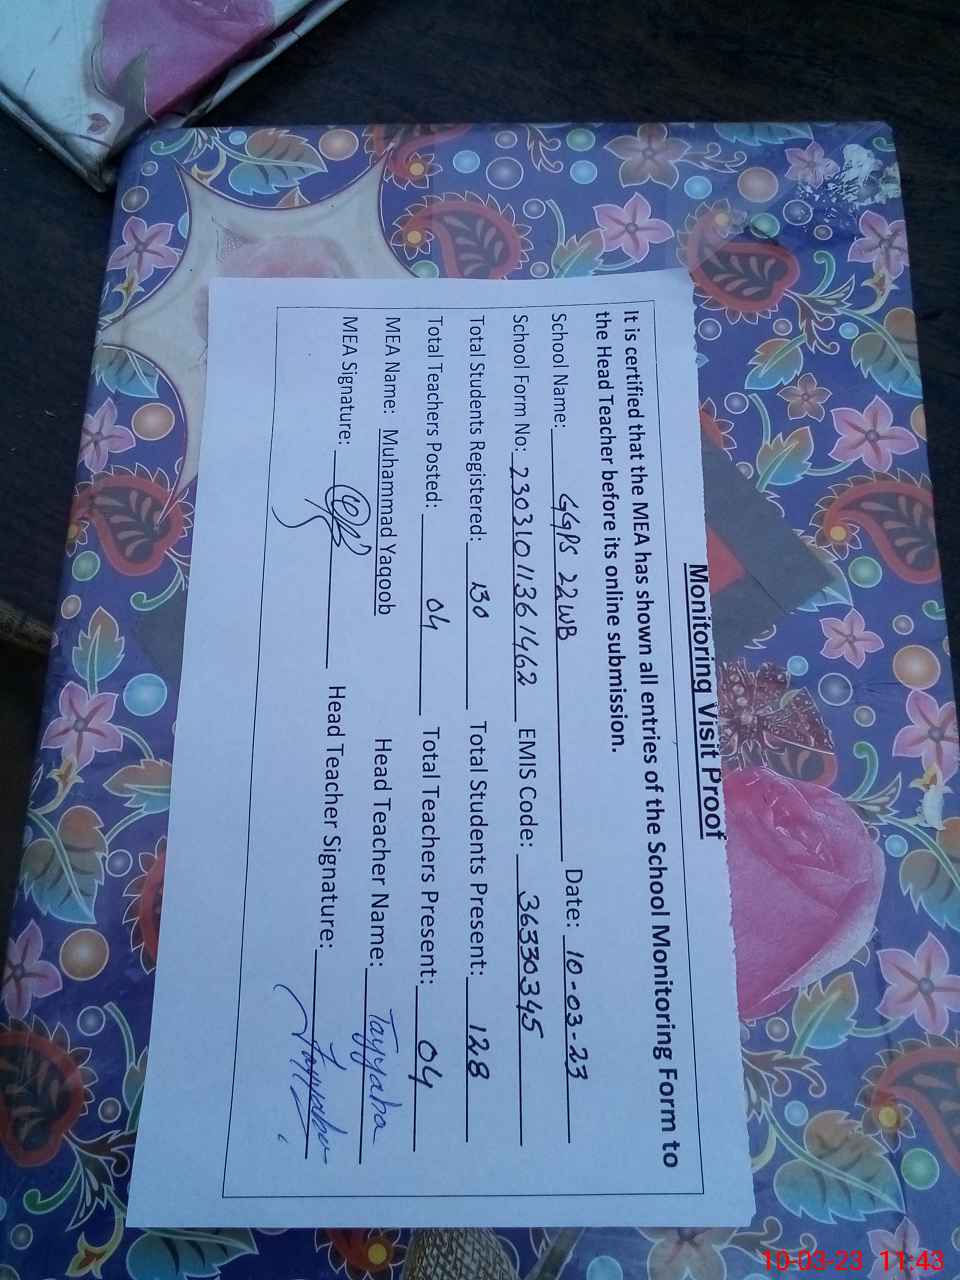 Monitoring Visit Proof
It is certified that the MEA has shown all entries of the School Monitoring Form to
the Head Teacher before its online submission.
School Name: GGPS 22WB Date: 10-03-23
School Form No: 2303101136 1462 EMIS Code: 36330345
Total Students Registered: 130 Total Students Present: 128
Total Teachers Posted: 04 Total Teachers Present: 04
MEA Name: Muhammad Yaqoob Head Teacher Name: Tayyaba
MEA Signature: Head Teacher Signature: Tayyaba
10-03-23 11:43